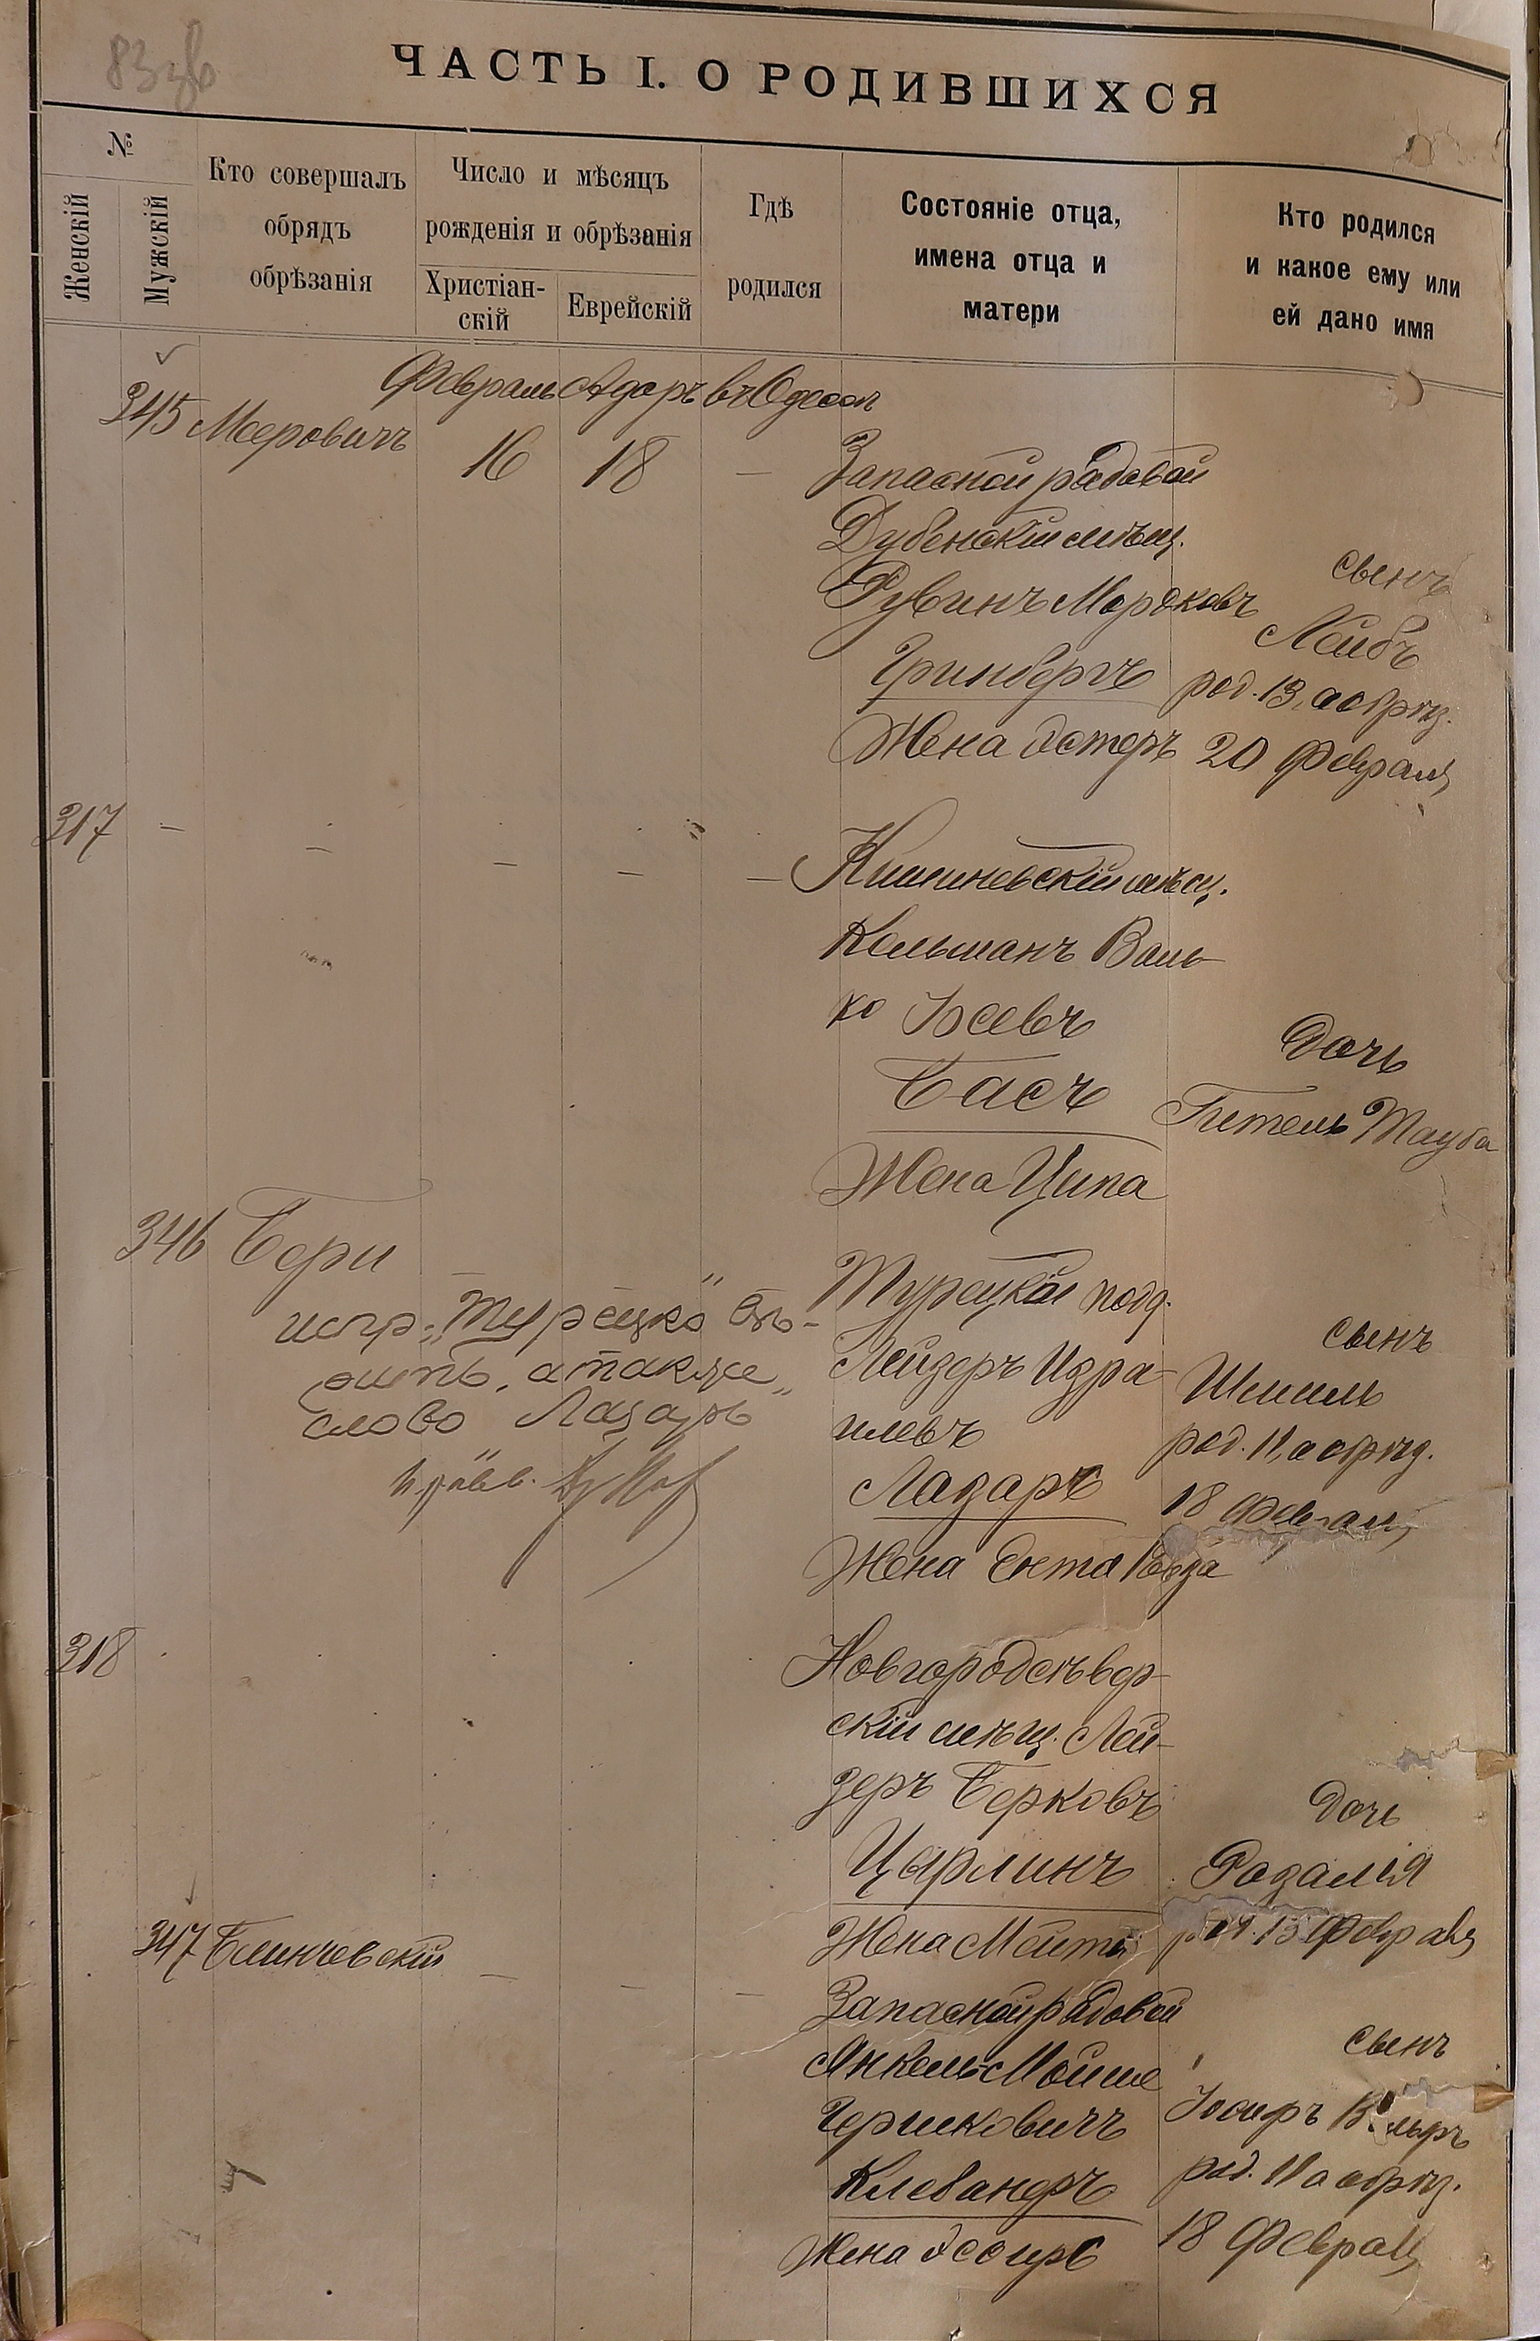 83 зв
ЧАСТЬ I. О РОДИВШИХСЯ
№
Женскій
Мужскій
Кто совершалъ
обрядъ
обрѣзанія
Число и мѣсяцъ
рожденія и обрѣзанія
Христіан-
скій
Еврейскій
Гдѣ
родился
Состояніе отца,
имена отца и
матери
Кто родился
и какое ему или
ей дано имя
Февраль Адаръ въ Одессѣ
345 Меровичъ 16 18 –
Запасной рядовой
Дубенскій мѣщ.
Рувинъ Мордковъ
Гринбергъ
Жена Эстеръ
сынъ
Лейбъ
род. 13, а обрѣз.
20 Февраля
317 – – – – –
Кишиневскій мѣщ.
Кельманъ Валь-
ко Іосевъ
Басъ
Жена Ципа
дочь
Гитель Тауба
346 Бери
испр. „Турецко"
а также
слово „Лазаръ"
Турецкій подд.
Лейзеръ Изра-
илевъ
Лазаръ
Жена Ента
сынъ
Шмиль
род. 11, а обрѣз.
18 Февраля
318
Новгородсѣвер-
скій мѣщ. Лей-
зеръ Берковъ
Цырлинъ
Жена Мейта
дочь
Розалія
род. 13 Февраля
347 Блинчевскій – – –
Запасной рядовой
Янкель Мойше
Гершковичъ
Клебанеръ
Жена Эсѳирь
сынъ
Іосифъ Вольфъ
род. 11 а обрѣз.
18 Февраля